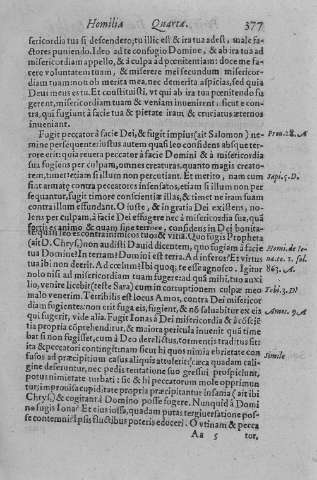 Homilia Quarta. 377
sericordia tus si descendero, tu illic es: & ira tua adest, male fa-
ctores puniendo. Ideo ad te confugio Domine, & ab ira tua ad
misericordiam appello, & à culpa ad pœnitentiam: doce me fa-
cere voluntatem tuam, & miserere mei secundum misericor-
diam tuam: non ob merita mea, nec demerita aspicias, sed quia
Deus meus es tu. Et constituisti, vt qui ab ira tua pœnitendo fu
gerent, misericordiam tuam & veniam inuenirent: sicut e con-
tra, qui fugiunt à facie tua & pietate iram, & cruciatus æternos
inueniant.
Fugit peccator à facie Dei, & fugit impius (ait Salomon) ne-
mine persequente: iustus autem quasi leo considens absque ter-
rore erit: quia reuera peccator à facie Domini & à misericordia
sua fugiens per culpam, omnes creaturas, quanto magis creato-
rem, timet etiam si illum non percutiant. Et merito, nam cum
sint armatæ contra peccatores insensatos, etiam si illum non per
sequantur, fugit timore conscientiæ illas, & timet ne iram suam
contra illum effundant. O iuste, & in gratia Dei existens, no-
lens per culpam, à facie Dei effugere nec à misericordia sua, quâ
fortis es animo & quam sine terrore, considens in Dei bonita-
te quasi leo es contra inimicos tuos & vitia. Quo fugis Propheta
(ait D. Chrys.) non audisti Dauid dicentem, quo fugiam à facie
tua Domine? In terram? Domini est terra. Ad inferos? Et virtus
tua ibi non deerit. Ad cœlum? Ibi quoq; te esse agnosco. Igitur
nolo nisi ad misericordiam tuam fugere ad quā mihi, tuo auxi
lio, venire licebit (teste Sara) cum in corruptionem culpæ meo
malo venerim. Terribilis est locus Amos, contra Dei misericor
diam fugientes: non erit fuga eis, fugient, & nō saluabitur ex eis
qui fugerit, vide alia. Fugit Ionas à Dei misericordia & à cōsciē
tia propria cōprehenditur, & maiora pericula inuenit quā time
bat si non fugisset, cum à Deo derelictus, tormentis traditus sit:
ita & peccatori contingit: nam sicut hi quos nimia ebrietate con
fusos ad præcipitium casus aliquis attulerit (cæca quadam cali-
gine deseruntur, nec pedis tentatione suo gressui prospiciunt,
potus nimietate turbati: sic & hi peccatorum mole opprimun
tur, improuisa cupiditate propria præcipitantur insania (ait ibi
Chrys.) & cogitant à Domino posse fugere. Nunquid à Domi
no fugis Iona? Et eius iossa, quadam putas tergiuersatione pos-
se contemni? Ipsis fluctibus poteris educeri. O vtinam & pecca
Aa 5 tor,
Prou. 28. A
Sapi. 5. D.
Homi. de Io-
na. to. 1. fol.
863. A.
Tobi. 3. D
Amos. 9. A
Simile